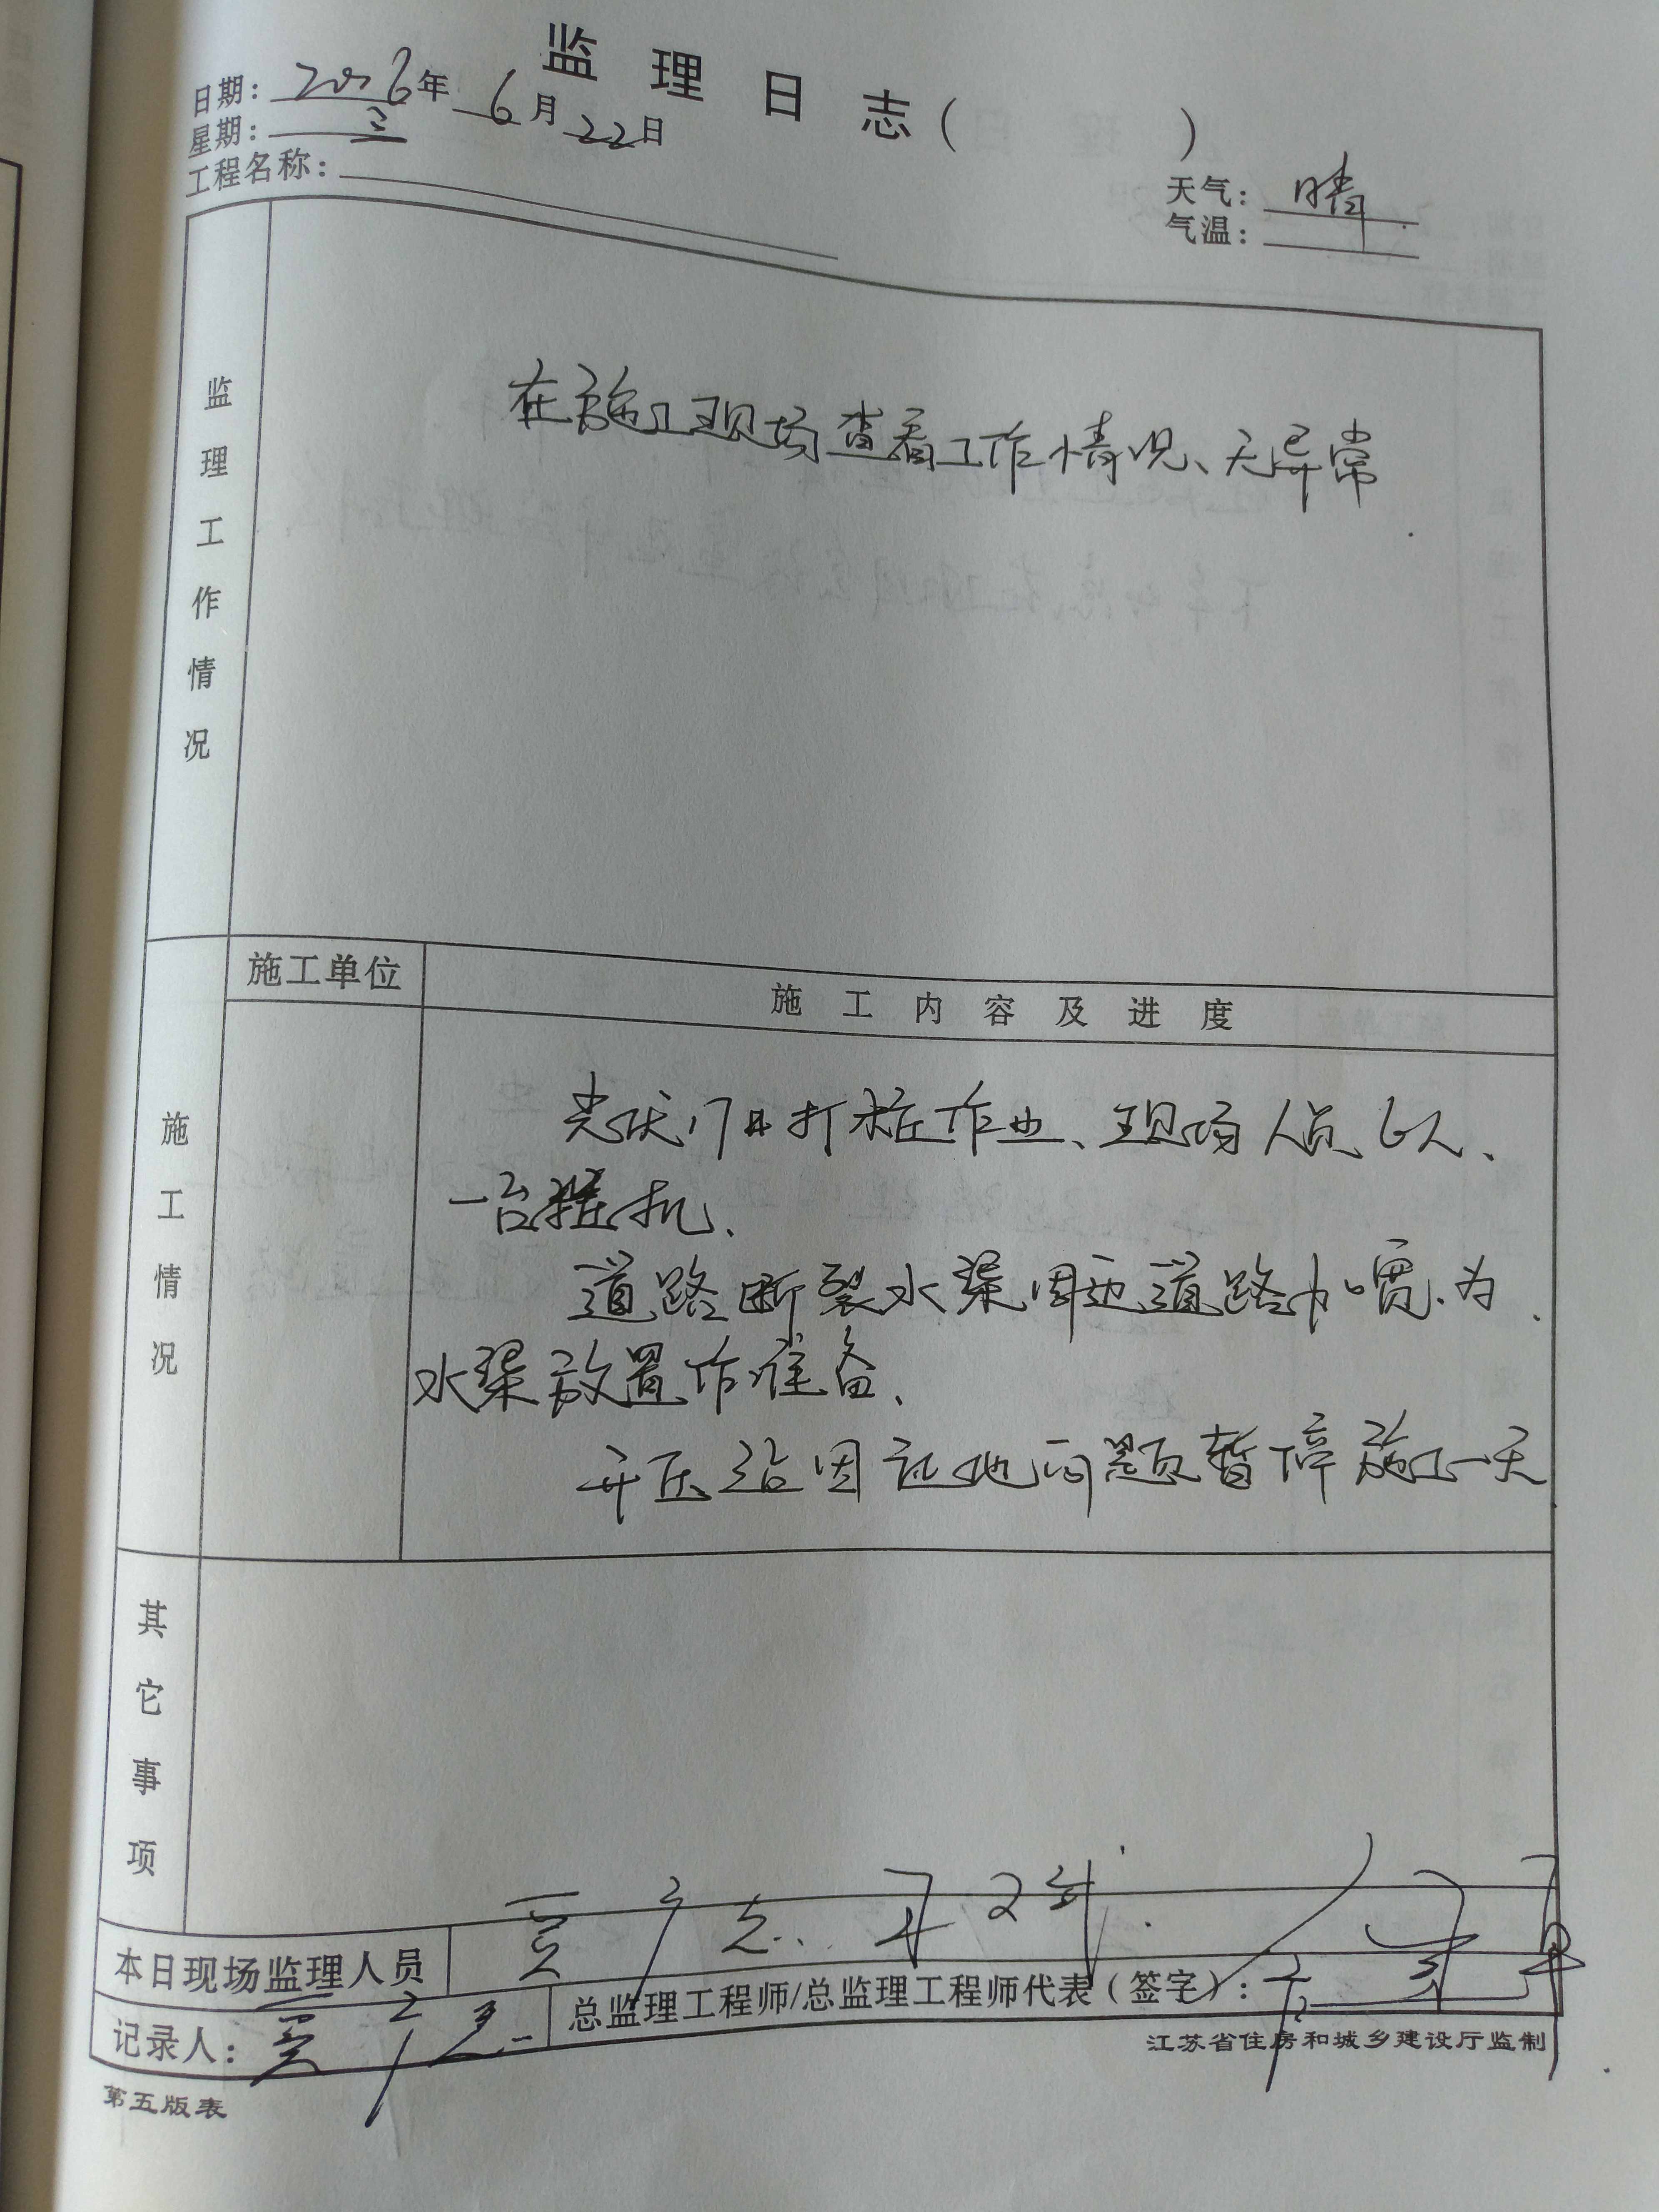 监理日志( )
日期: 2016年 6月 22日
星期: 三
工程名称:
天气: 晴
气温:
监理工作情况
在施工现场查看工作情况、无异常
施工单位
施工内容及进度
施工情况
光伏 打桩作业、现场人员 6人、
一台桩机、
道路断裂水渠周边道路加宽、为
水渠放置作准备、
升压站因 地问题暂停施工一天
其它事项
本日现场监理人员
贾广志
记录人: 贾广志
总监理工程师/总监理工程师代表(签字):
江苏省住房和城乡建设厅监制
第五版表